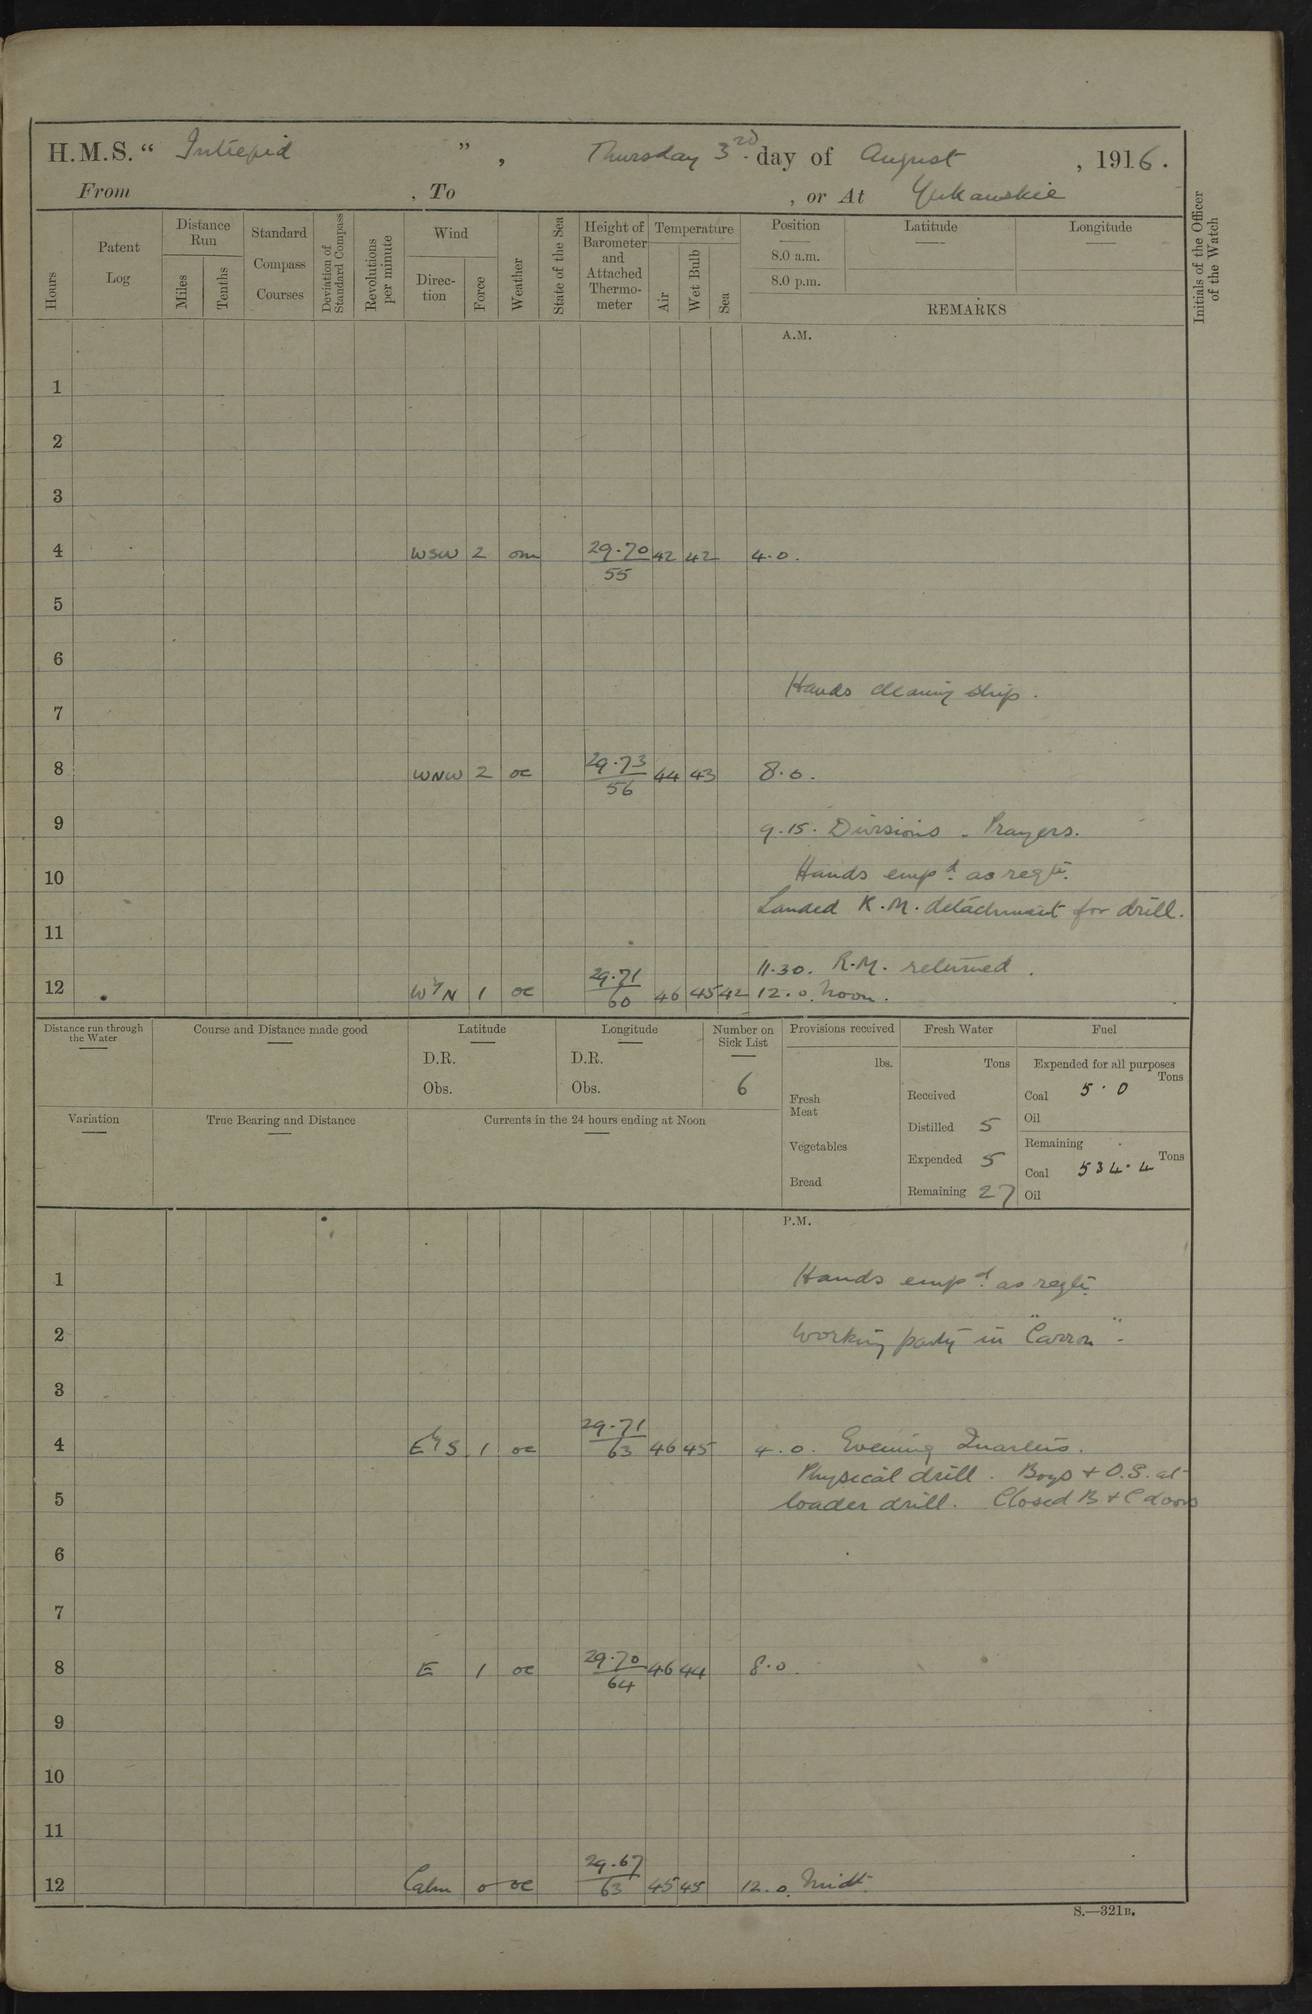 H.M.S. “ Intrepid ” , Thursday 3rd. day of August , 1916.
From , To , or At Yukanskie
Hours
Patent Log
Distance Run
Miles
Tenths
Standard Compass Courses
Deviation of Standard Compass
Revolutions per minute
Wind
Direc-tion
Force
Weather
State of the Sea
Height of Barometer and Attached Thermo-meter
Temperature
Air
Wet Bulb
Sea
Position
8.0 a.m.
8.0 p.m.
Latitude
Longitude
REMARKS
Initials of the Officer of the Watch
A.M.
1
2
3
4 WSW 2 om 29.70/55 42 42 4.0.
5
6
Hands cleaning ship.
7
8 WNW 2 oc 29.73/56 44 43 8.0.
9 9.15. Divisions - Prayers.
10 Hands empd. as reqte.
Landed R.M. detachment for drill.
11
11.30. R.M. returned.
12 WyN 1 oc 29.71/60 46 45 42 12.0. Noon.
Distance run through the Water
Course and Distance made good
Latitude
D.R.
Obs.
Longitude
D.R.
Obs.
Number on Sick List
6
Variation
True Bearing and Distance
Currents in the 24 hours ending at Noon
Provisions received
lbs.
Fresh Meat
Vegetables
Bread
Fresh Water
Tons
Received
Distilled 5
Expended 5
Remaining 27
Fuel
Expended for all purposes
Tons
Coal 5.0
Oil
Remaining
Tons
Coal 534.4
Oil
P.M.
1 Hands empd. as reqte.
2 Working party in "Carron".
3
4 EyS 1 oc 29.71/63 46 45 4.0. Evening Quarters.
Physical drill. Boys + O.S. at
5 loader drill. Closed B + C doors
6
7
8 E 1 oc 29.70/64 46 44 8.0.
9
10
11
12 Calm 0 oc 29.67/63 45 45 12.0. Midt.
S.—321B.